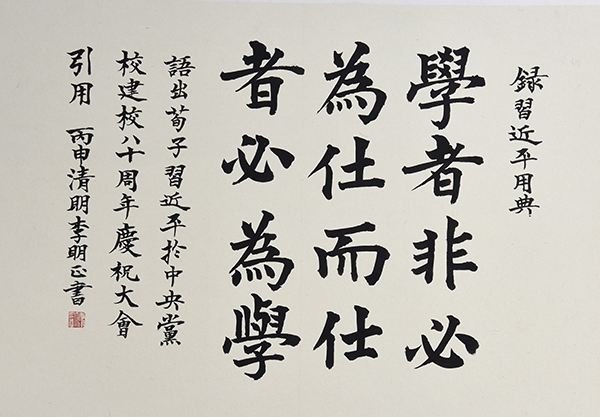 録習近平用典
學者非必
為仕而仕
者必為學
語出荀子習近平於中央黨
校建校八十周年慶祝大會
引用 丙申清明李明正書